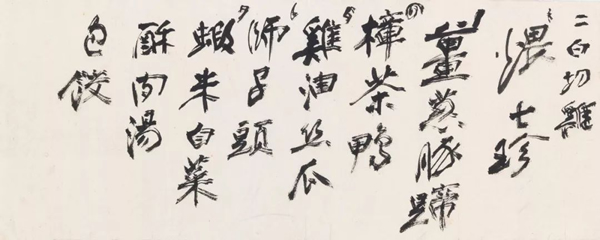 二白切雞
煨七珍
薑蒸豚蹄
樟茶鴨
雞油絲瓜
師子頭
蝦米白菜
酥肉湯